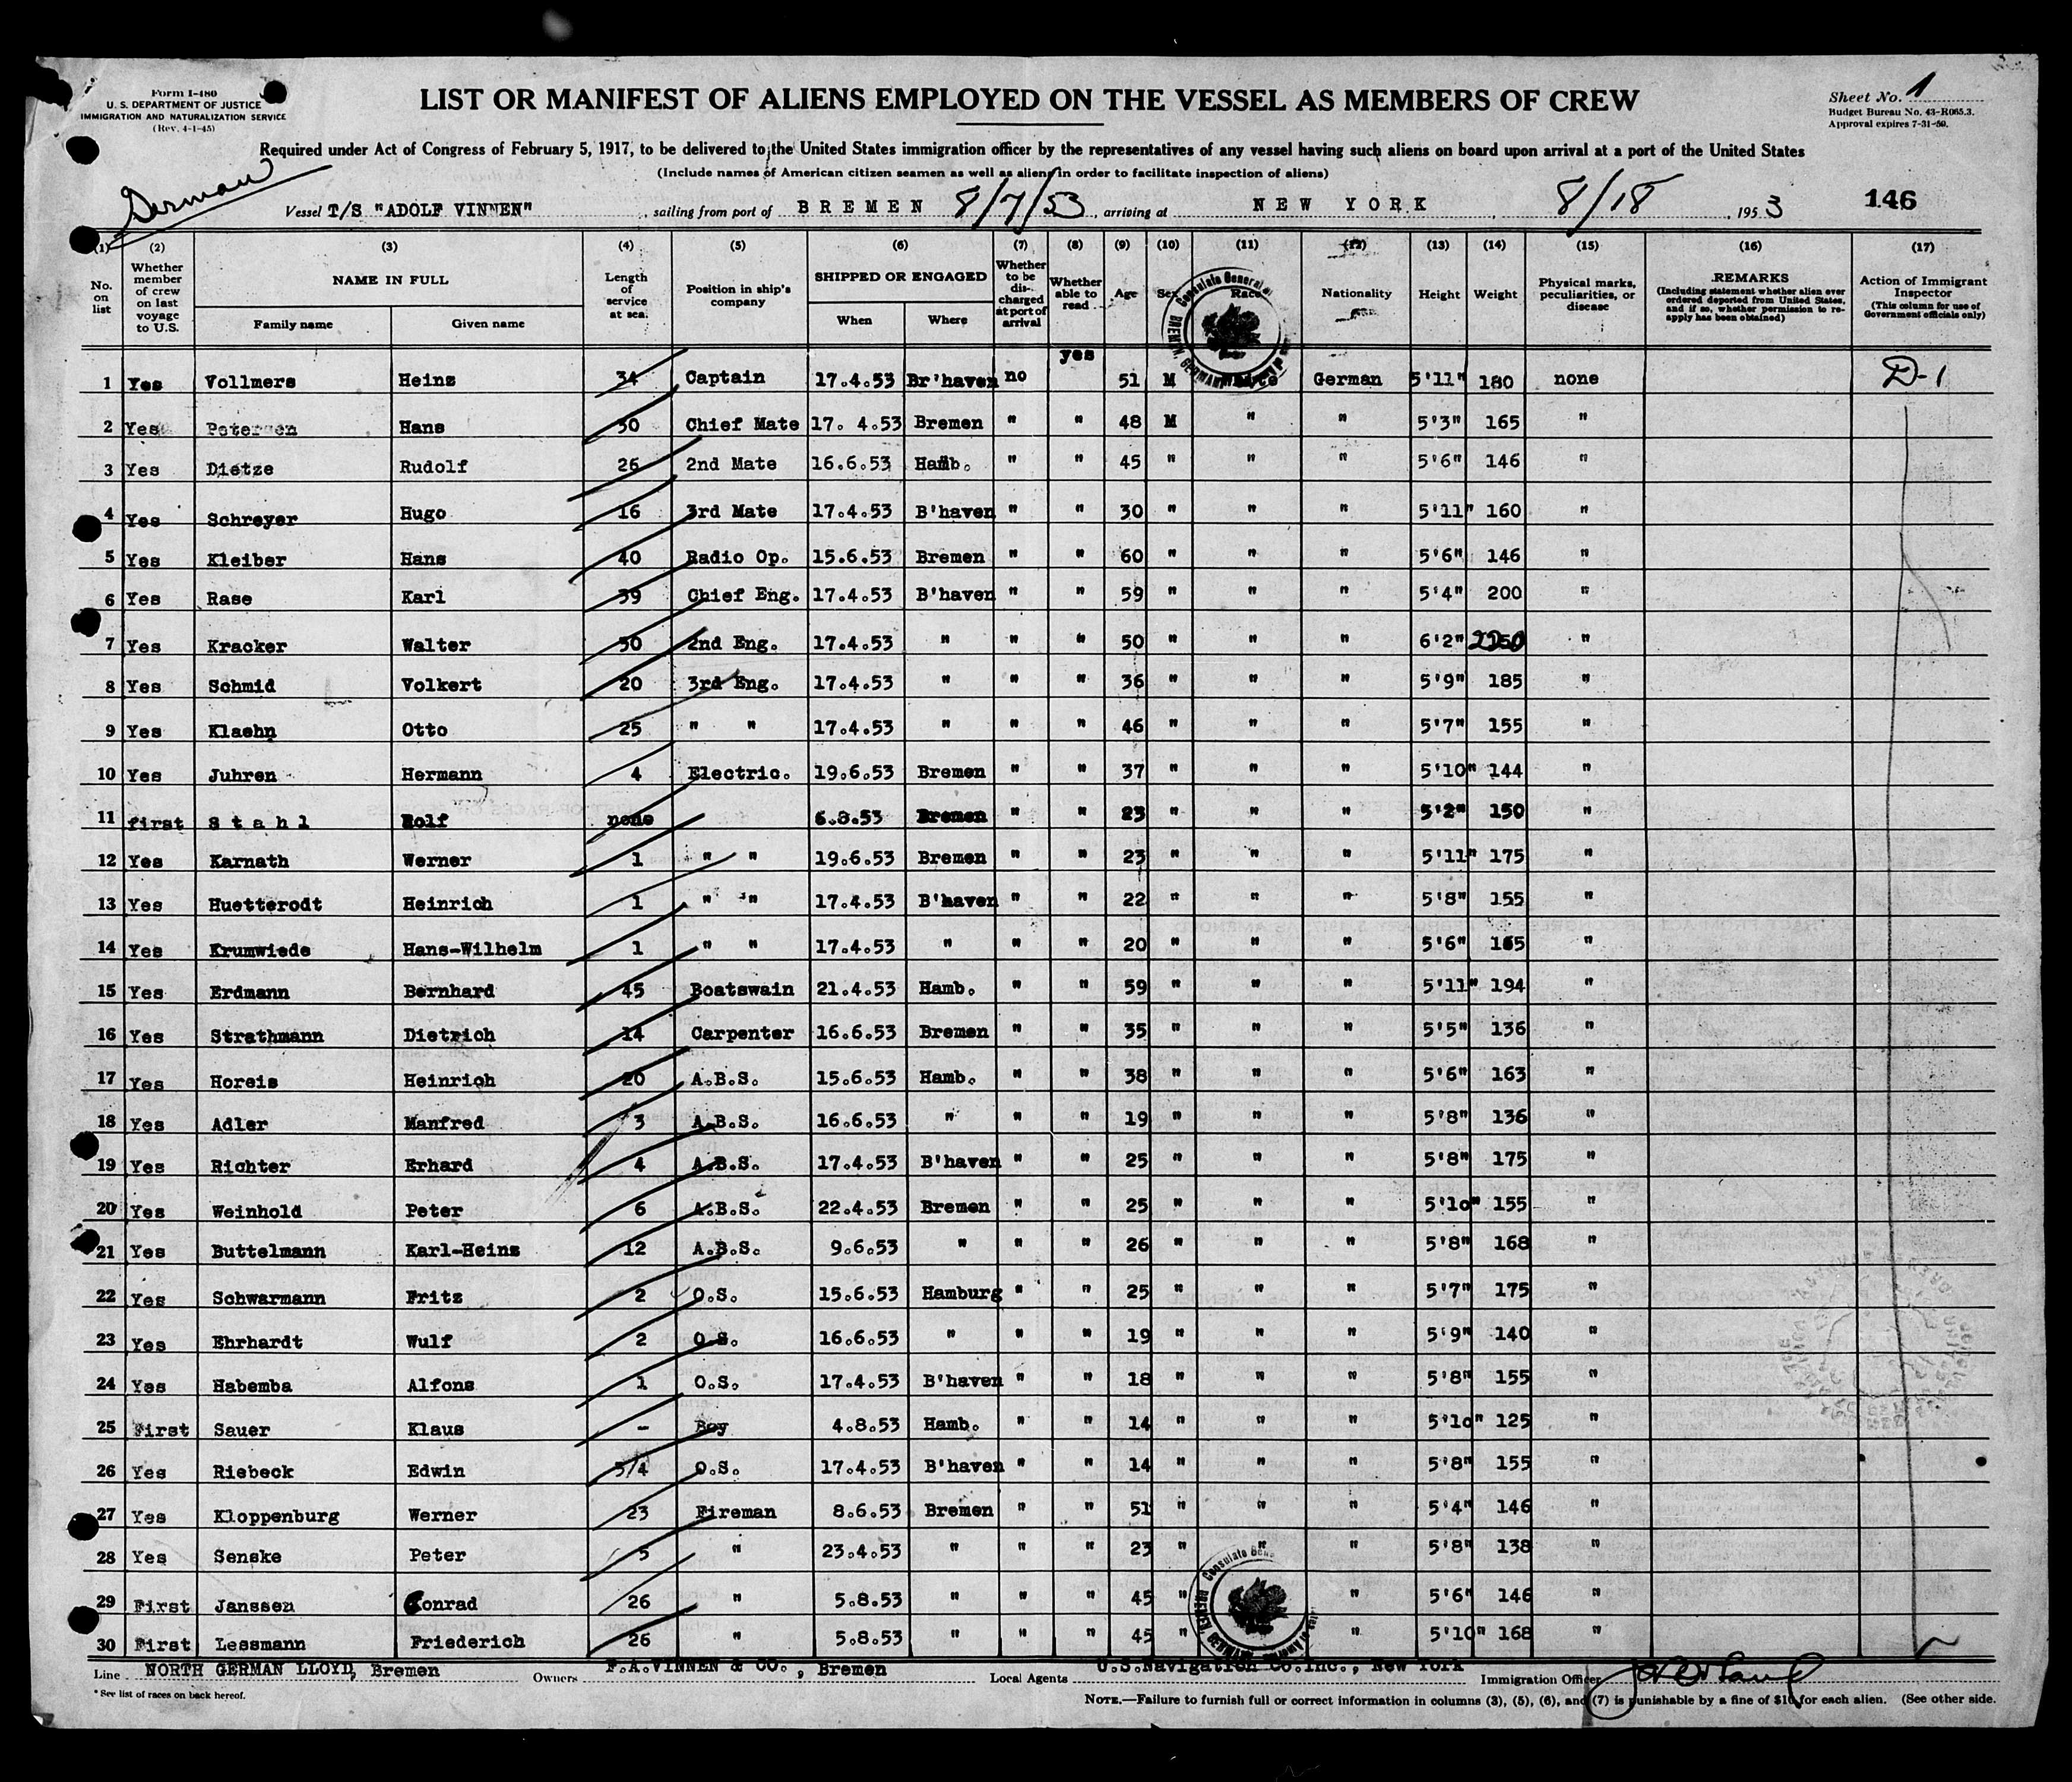 Form I-480
U. S. DEPARTMENT OF JUSTICE
IMMIGRATION AND NATURALIZATION SERVICE
(Rev. 4-1-45)
LIST OR MANIFEST OF ALIENS EMPLOYED ON THE VESSEL AS MEMBERS OF CREW
Sheet No. 1
Budget Bureau No. 43-R065.3.
Approval expires 7-31-50.
Required under Act of Congress of February 5, 1917, to be delivered to the United States immigration officer by the representatives of any vessel having such aliens on board upon arrival at a port of the United States
(Include names of American citizen seamen as well as aliens in order to facilitate inspection of aliens)
German
Vessel T/S "ADOLF VINNEN", sailing from port of BREMEN 8/7/53, arriving at NEW YORK, 8/18, 1953 146
(1) (2) (3) (4) (5) (6) (7) (8) (9) (10) (11) (12) (13) (14) (15) (16) (17)
No. on list
Whether member of crew on last voyage to U.S.
NAME IN FULL
Family name Given name
Length of service at sea.
Position in ship's company
SHIPPED OR ENGAGED
When Where
Whether to be discharged at port of arrival
Whether able to read
Age
Sex
Race
Nationality
Height
Weight
Physical marks, peculiarities, or disease
REMARKS
(Including statement whether alien ever ordered deported from United States, and if so, whether permission to reapply has been obtained)
Action of Immigrant Inspector
(This column for use of Government officials only)
Consulate General
BREMEN, GERMANY
yes
1 Yes Vollmers Heinz 34 Captain 17.4.53 Br'haven no 51 M German 5'11" 180 none D-1
2 Yes Petersen Hans 30 Chief Mate 17. 4.53 Bremen " " 48 M " " 5'3" 165 "
3 Yes Dietze Rudolf 26 2nd Mate 16.6.53 Hamb. " " 45 " " " 5'6" 146 "
4 Yes Schreyer Hugo 16 3rd Mate 17.4.53 B'haven " " 30 " " " 5'11" 160 "
5 Yes Kleiber Hans 40 Radio Op. 15.6.53 Bremen " " 60 " " " 5'6" 146 "
6 Yes Rase Karl 39 Chief Eng. 17.4.53 B'haven " " 59 " " " 5'4" 200 "
7 Yes Kracker Walter 30 2nd Eng. 17.4.53 " " " 50 " " " 6'2" 220 "
8 Yes Schmid Volkert 20 3rd Eng. 17.4.53 " " " 36 " " " 5'9" 185 "
9 Yes Klaehn Otto 25 " " 17.4.53 " " " 46 " " " 5'7" 155 "
10 Yes Juhren Hermann 4 Electric. 19.6.53 Bremen " " 37 " " " 5'10" 144 "
11 first Stahl Rolf none 6.8.53 Bremen " " 23 " " " 5'2" 150 "
12 Yes Karnath Werner 1 " " 19.6.53 Bremen " " 23 " " " 5'11" 175 "
13 Yes Huetterodt Heinrich 1 " " 17.4.53 B'haven " " 22 " " " 5'8" 155 "
14 Yes Krumwiede Hans-Wilhelm 1 " " 17.4.53 " " " 20 " " " 5'6" 165 "
15 Yes Erdmann Bernhard 45 Boatswain 21.4.53 Hamb. " " 59 " " " 5'11" 194 "
16 Yes Strathmann Dietrich 14 Carpenter 16.6.53 Bremen " " 35 " " " 5'5" 136 "
17 Yes Horeis Heinrich 20 A.B.S. 15.6.53 Hamb. " " 38 " " " 5'6" 163 "
18 Yes Adler Manfred 3 A.B.S. 16.6.53 " " " 19 " " " 5'8" 136 "
19 Yes Richter Erhard 4 A.B.S. 17.4.53 B'haven " " 25 " " " 5'8" 175 "
20 Yes Weinhold Peter 6 A.B.S. 22.4.53 Bremen " " 25 " " " 5'10" 155 "
21 Yes Buttelmann Karl-Heinz 12 A.B.S. 9.6.53 " " " 26 " " " 5'8" 168 "
22 Yes Schwarmann Fritz 2 O.S. 15.6.53 Hamburg " " 25 " " " 5'7" 175 "
23 Yes Ehrhardt Wulf 2 O.S. 16.6.53 " " " 19 " " " 5'9" 140 "
24 Yes Habemba Alfons 1 O.S. 17.4.53 B'haven " " 18 " " " 5'8" 155 "
25 First Sauer Klaus - Boy 4.8.53 Hamb. " " 14 " " " 5'10" 125 "
26 Yes Riebeck Edwin 3/4 O.S. 17.4.53 B'haven " " 14 " " " 5'8" 155 "
27 Yes Kloppenburg Werner 23 Fireman 8.6.53 Bremen " " 51 " " " 5'4" 146 "
28 Yes Senske Peter 5 " 23.4.53 " " " 23 " " " 5'8" 138 "
29 First Janssen Conrad 26 " 5.8.53 " " " 45 " " 5'6" 146 "
30 First Lessmann Friederich 26 " 5.8.53 " " " 45 " " 5'10" 168 "
Consulate
BREMEN, GERMANY
Line NORTH GERMAN LLOYD, Bremen Owners F.A.VINNEN & CO., Bremen Local Agents U.S.Navigation Co.Inc., New York Immigration Officer
* See list of races on back hereof.
NOTE.—Failure to furnish full or correct information in columns (3), (5), (6), and (7) is punishable by a fine of $10 for each alien. (See other side.